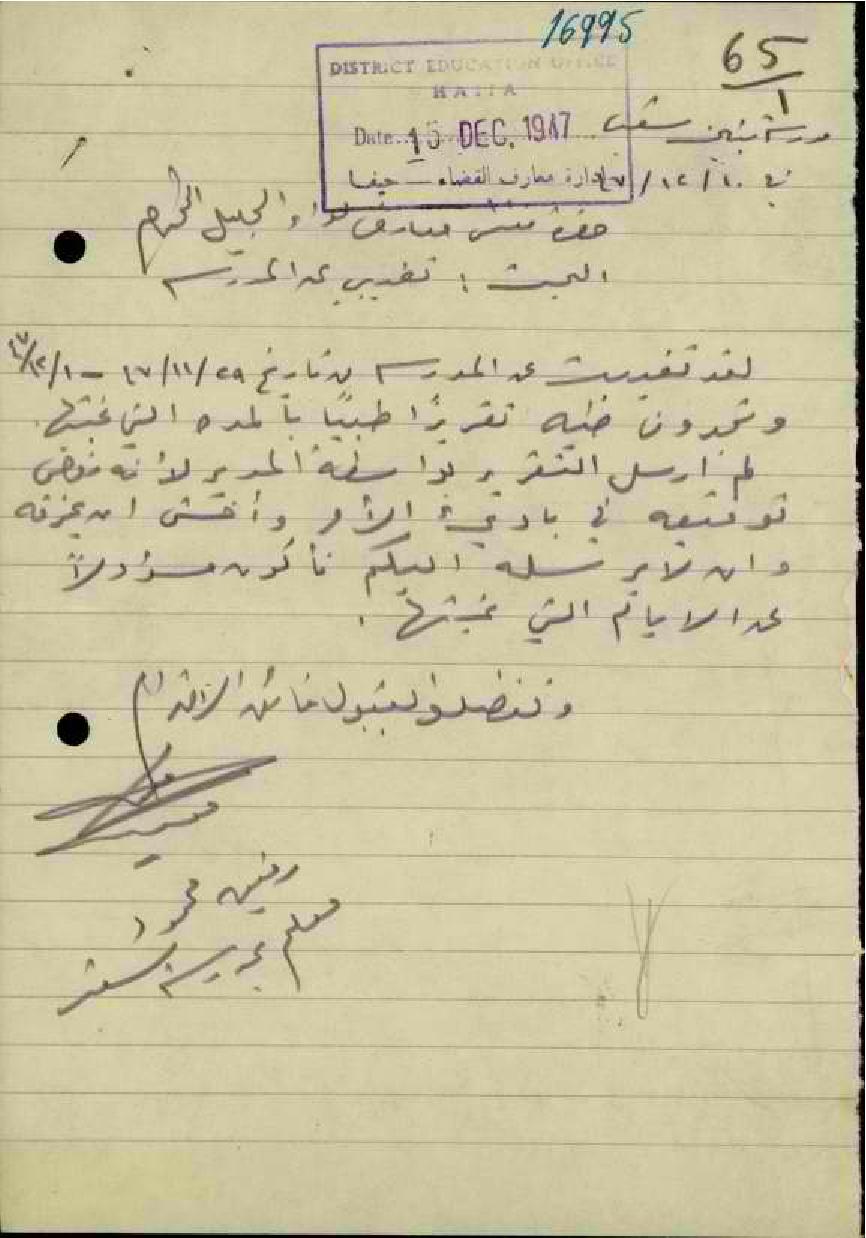 16995
65
1
DISTRICT EDUCATION OFFICE
HAIFA
Date 15 DEC. 1947
ادارة معارف القضاء – حيفا
مدرسة بنين
في ١٠/١٢/٤٧
حضرة مفتش معارف لواء الجليل المحترم
البحث : تغيبي عن المدرسه
لقد تغيبت عن المدرسه من تاريخ ٢٩/١١/٤٧ – ١/١٢/٤٧
وتجدون طيه تقريرًا طبيًا بالمده التي غبتها.
لم ارسل التقرير بواسطة المدير لأنه رفض
توقيعه في باديء الأمر وأخشى ان يمزقه
وان لا يرسله اليكم فأكون مسؤولاً
عن الايام التي غبتها .
وتفضلوا بقبول فائق الاحترام
رفيق محمود
معلم بمدرسة